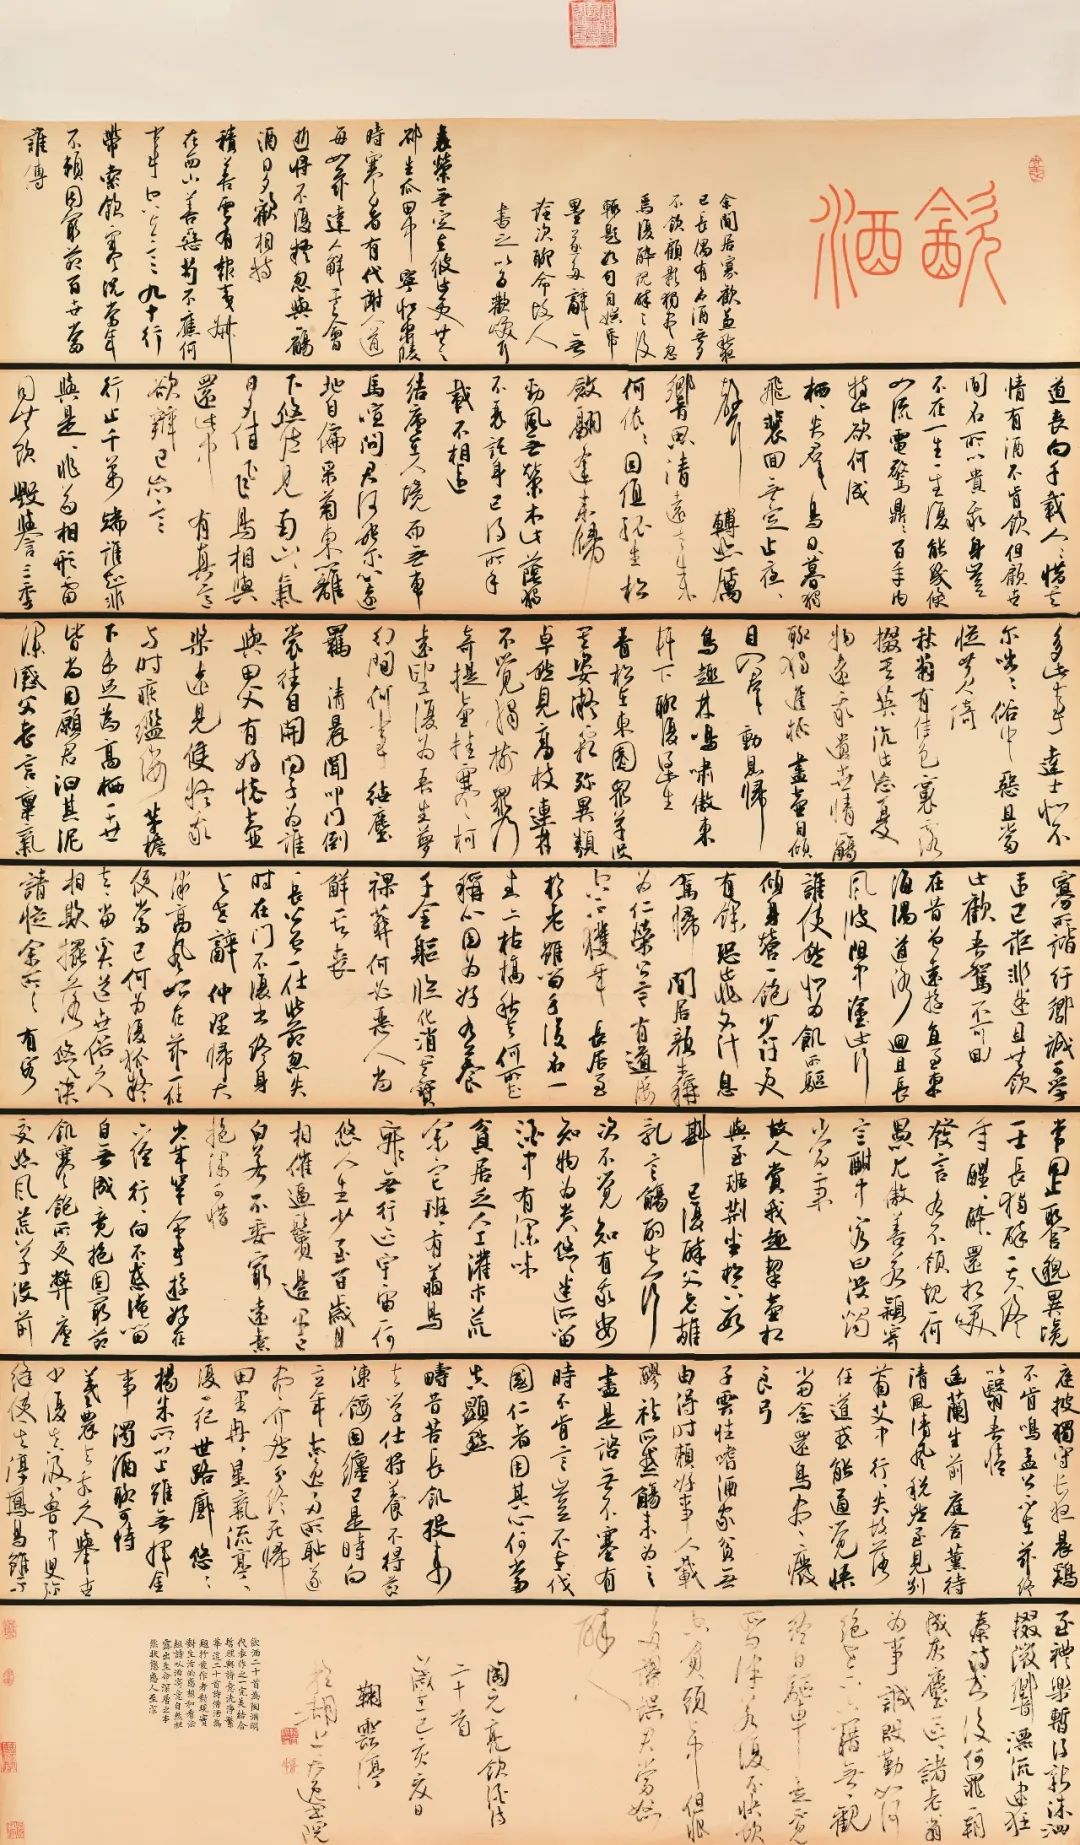 飲酒
余閒居寡歡兼比夜
已長偶有名酒無夕
不飲顧影獨盡忽
焉復醉既醉之後
輒題數句自娛紙
墨遂多辭無
詮次聊命故人
書之以為歡笑爾
衰榮無定在彼此更共之
邵生瓜田中寧似東陵
時寒暑有代謝人道
每如茲達人解其會
逝將不復疑忽與觴
酒日夕歡相持
積善云有報夷叔
在西山善惡苟不應何
事空立言九十行
帶索飢寒況當年
不賴固窮節百世當
誰傳
道喪向千載人人惜其
情有酒不肯飲但顧世
間名所以貴我身豈
不在一生一生復能幾倏
如流電驚鼎鼎百年內
持此欲何成
栖栖失群鳥日暮猶獨
飛裴回無定止夜夜
聲轉悲厲
響思清遠去來
何依依因值孤生松
斂翮遙來歸
勁風無榮木此蔭獨
不衰託身已得所千
載不相違
結廬在人境而無車
馬喧問君何能爾心遠
地自偏采菊東籬
下悠然見南山山氣
日夕佳飛鳥相與
還此中有真意
欲辨已忘言
行止千萬端誰知非
與是是非苟相形雷
同共毀譽三季
多此事達士似不
爾咄咄俗中惡且當
從黃綺
秋菊有佳色裛露
掇其英汎此忘憂
物遠我遺世情一觴
聊獨進杯盡壺自傾
日入群動息歸
鳥趨林鳴嘯傲東
軒下聊復得此生
青松在東園眾草沒
其姿凝霜殄異類
卓然見高枝連林人
不覺獨樹眾乃
奇提壺挂寒柯
遠望復為吾生夢
幻間何事紲塵
羈清晨聞叩門倒
裳往自開問子為誰
與田父有好懷壺
漿遠見候疑我
與時乖繿縷茅簷
下未足為高栖一世
皆尚同願君汩其泥
深感父老言稟氣
寡所諧紆轡誠可學
違己詎非迷且共飲
此歡吾駕不可回
在昔曾遠遊直至東
海隅道路迥且長
風波阻中塗此行
誰使然似為飢所驅
傾身營一飽少許便
有餘恐此非名計息
駕歸閒居顏生稱
為仁榮公言有道屢
空不獲年長飢至
於老雖留身後名一
生亦枯槁死去何所知
稱心固為好客養
千金軀臨化消其寶
裸葬何必惡人當
解其表
長公曾一仕壯節忽失
時杜門不復出終身
與世辭仲理歸大
澤高風始在茲一往
便當已何為復狐疑
去去當奚道世俗久
相欺擺落悠悠談
請從余所之有客
常同止取舍邈異境
一士長獨醉一夫終
年醒醒醉還相笑
發言各不領規規一何
愚兀傲差若穎寄
言酣中客日沒燭
當秉
故人賞我趣挈壺相
與至班荊坐松下數
斟已復醉父老雜
亂言觴酌失行
次不覺知有我安
知物為貴悠悠迷所留
酒中有深味
貧居乏人工灌木荒
余宅班班有翔鳥
寂寂無行跡宇宙一何
悠人生少至百歲月
相催逼鬢邊早已
白若不委窮達素
抱深可惜
少年罕人事遊好在
六經行行向不惑淹留
自無成竟抱固窮節
飢寒飽所更弊廬
交悲風荒草沒前
庭披褐守長夜晨雞
不肯鳴孟公不在茲終
以翳吾情
幽蘭生前庭含薰待
清風清風脫然至見別
蕭艾中行行失故路
任道或能通覺悟
當念還鳥盡廢
良弓
子雲性嗜酒家貧無
由得時賴好事人載
醪祛所惑觴來為之
盡是諮無不塞有
時不肯言豈不在伐
國仁者用其心何嘗
失顯默
疇昔苦長飢投耒
去學仕將養不得節
凍餒固纏己是時向
立年志意多所恥遂
盡介然分終死歸
田里冉冉星氣流亭亭
復一紀世路廓悠悠
楊朱所以止雖無揮金
事濁酒聊可恃
羲農去我久舉世
少復真汲汲魯中叟彌
縫使其淳鳳鳥雖不
至禮樂暫得新洙泗
輟微響漂流逮狂
秦詩書復何罪一朝
成灰塵區區諸老翁
為事誠殷勤如何
絕世下六籍無一親
終日驅車走不見
所問津若復不快飲
空負頭上巾但恨
多謬誤君當恕
醉人
陶元亮飲酒詩
二十首
歲在己亥夏日
飲酒二十首為陶淵明
代表作之一完美結合
哲理與詩意洗淨繁
華這二十首詩借酒為
題抒發作者對現實
對生活的感想和看法
組詩以酒寄意自然袒
露出生命深層之本
然狀態感人至深